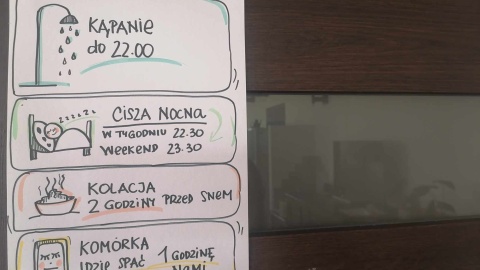 KĄPANIE
do 22.00
zzzzz
CISZA NOCNA
W TYGODNIU 22.30
WEEKEND 23.30
KOLACJA
2 GODZINY PRZED SNEM
KOMÓRKA
IDZIE SPAĆ 1 GODZINĘ